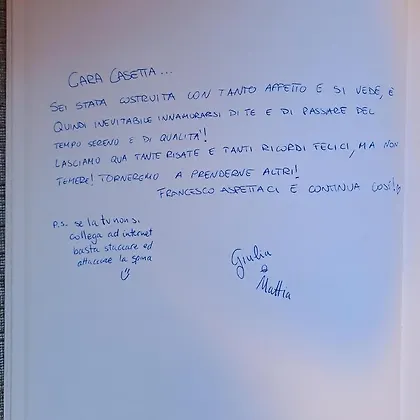 CARA CASETTA...
SEI STATA COSTRUITA CON TANTO AFFETTO E SI VEDE, È
QUINDI INEVITABILE INNAMORARSI DI TE E DI PASSARE DEL
TEMPO SERENO E DI QUALITA'!
LASCIAMO QUA TANTE RISATE E TANTI RICORDI FELICI, MA NON
TEMERE! TORNEREMO A PRENDERNE ALTRI!
FRANCESCO ASPETTACI E CONTINUA COSÌ!
p.s. se la tv non si
collega ad internet
basta staccare ed
attaccare la spina
Giulia
e
Mattia